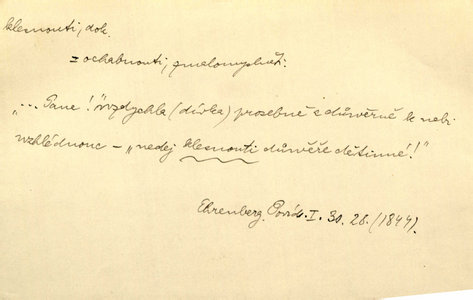 klesnouti, dok.
zochabnouti, zmalomyslněti:
„... Pane! “vzdychla (dívka) prosebně i důwěrně k nebi
wzhlédnouc – „nedej klesnouti důwěře dětinné!“
Ehrenberg. Povíd. I. 30. 28. (1844).